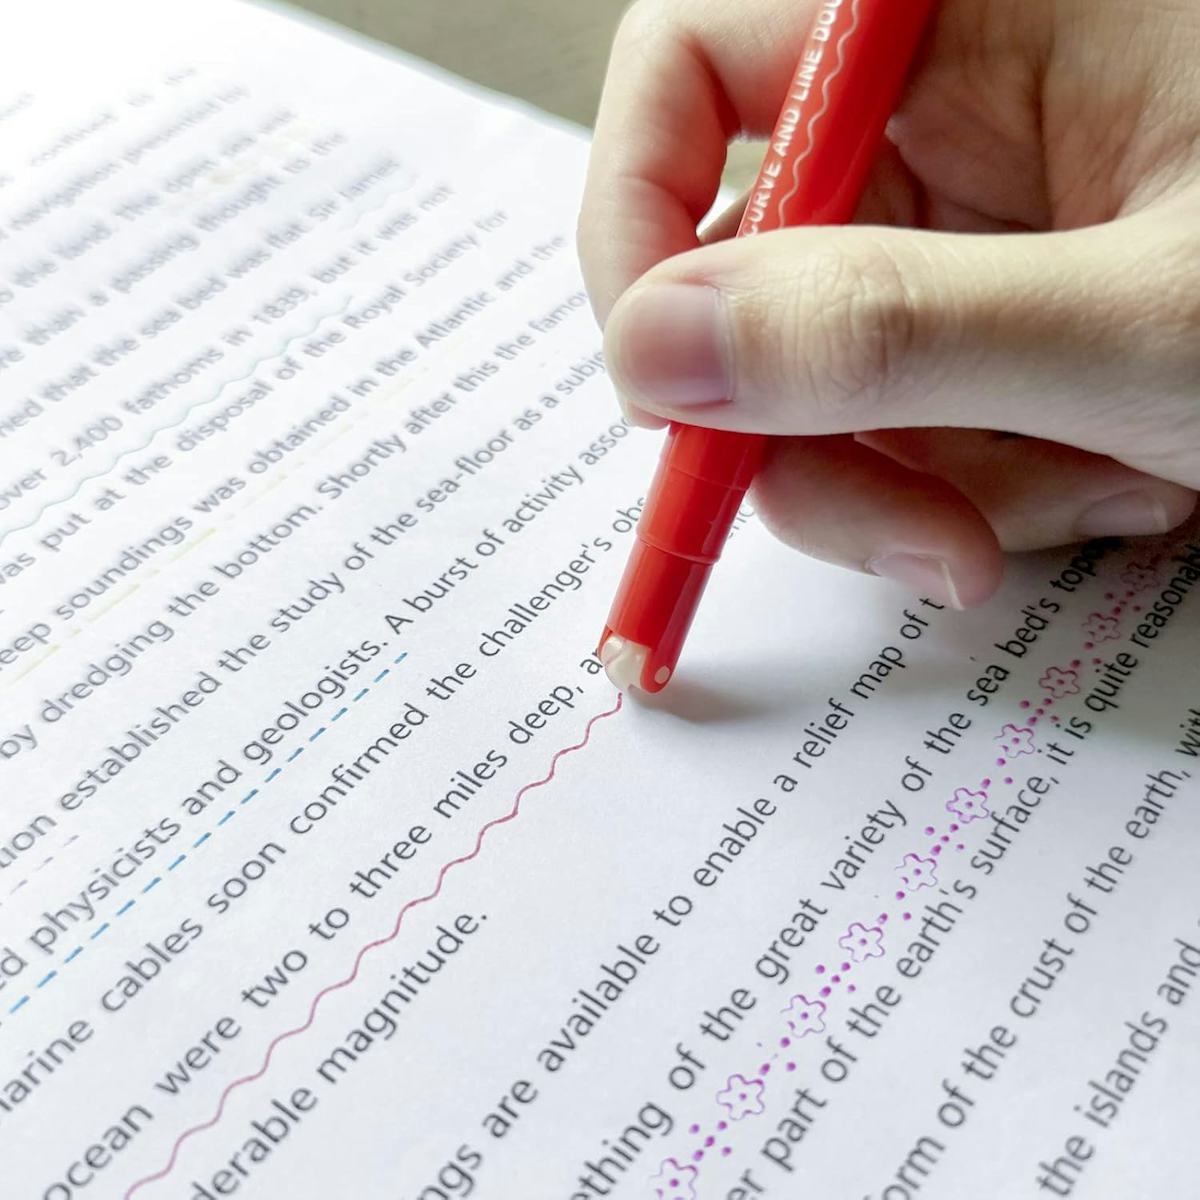 contract to the
exception presented by
to the land. The deep sea was
than a passing thought to the
that the sea bed was flat. Sir James
over 2,400 fathoms in 1839, but it was not
was put at the disposal of the Royal Society for
deep soundings was obtained in the Atlantic and the
by dredging the bottom. Shortly after this the famou
established the study of the sea-floor as a subj
physicists and geologists. A burst of activity asso
marine cables soon confirmed the challenger's obs
ocean were two to three miles deep, a
derable magnitude.
ngs are available to enable a relief map of t
ething of the great variety of the sea bed's topo
er part of the earth's surface, it is quite reasonabl
orm of the crust of the earth, wit
the islands and
CURVE AND LINE DOU